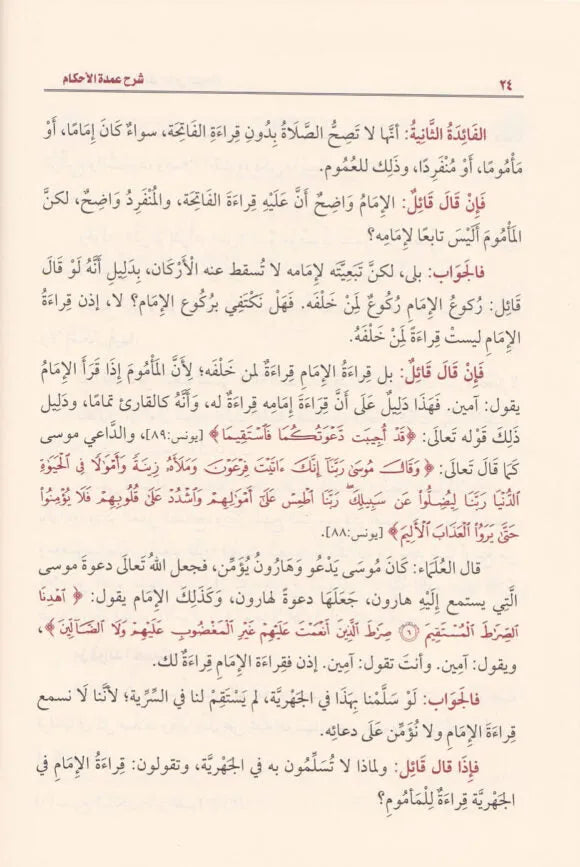 ٢٤ شرح عمدة الأحكام
الفَائِدَةُ الثَّانِيةُ: أنَّها لا تَصِحُّ الصَّلَاةُ بِدُونِ قِراءَةِ الفَاتِحَة، سواءٌ كَانَ إِمَامًا، أَوْ
مَأْمُومًا، أَوْ مُنْفَرِدًا، وَذَلِك للعُمُوم.
فَإِنْ قَالَ قَائِلٌ: الإِمَامُ وَاضِحٌ أَنَّ عَلَيْهِ قِرَاءَةَ الفَاتْحَة، والمُنْفَرِدُ وَاضِحٌ، لكنَّ
المَأْمُومَ أَلَيْسَ تابعًا لإِمَامِه؟
فالجَوَاب: بلى، لكنَّ تَبَعِيَّتَه لإِمامه لا تُسقط عنه الأَرْكَان، بِدَلِيلِ أَنَّهُ لَو قَالَ
قَائِل: رُكوعُ الإِمَامِ رُكُوعٌ لِمَنْ خَلْفَه. فَهَلْ نَكْتَفِي بِرُكُوعِ الإِمَام؟ لا، إذن قِراءَةُ
الإِمَامِ ليستْ قِراءَةً لِمَنْ خَلْفَهُ.
فَإِنْ قَالَ قَائِلٌ: بل قِراءَةُ الإِمَامِ قِراءَةٌ لمن خَلْفَه؛ لِأَنَّ المَأْمُومَ إِذَا قَرَأَ الإِمَامُ
يقول: آمين. فَهَذَا دَلِيلٌ عَلَى أَنَّ قِرَاءَةَ إِمَامِه قِراءَةٌ له، وَأَنَّهُ كالقارئ تمامًا، ودَلِيل
ذَلِكَ قَوْله تَعَالَى: ﴿قَدْ أُجِيبَت دَّعْوَتُكُمَا فَاسْتَقِيمَا﴾ [يونس:٨٩]، والدَّاعي موسى
كمَا قَالَ تَعَالَى: ﴿وَقَالَ مُوسَىٰ رَبَّنَا إِنَّكَ ءَاتَيْتَ فِرْعَوْنَ وَمَلَأَهُ زِينَةً وَأَمْوَٰلًا فِي الْحَيَوٰةِ
الدُّنْيَا رَبَّنَا لِيُضِلُّوا۟ عَن سَبِيلِكَ ۖ رَبَّنَا اطْمِسْ عَلَىٰٓ أَمْوَٰلِهِمْ وَاشْدُدْ عَلَىٰ قُلُوبِهِمْ فَلَا يُؤْمِنُوا۟
حَتَّىٰ يَرَوُا۟ الْعَذَابَ الْأَلِيمَ﴾ [يونس:٨٨].
قال العُلَمَاء: كَانَ مُوسَى يَدْعُو وَهَارُونُ يُؤَمِّن، فجعل اللهُ تَعَالَى دعوةَ موسى
الَّتِي يستمع إِلَيْهِ هارون، جَعَلَهَا دعوةً لهارون، وَكَذَلِكَ الإِمَام يقول: ﴿اهْدِنَا
الصِّرَٰطَ الْمُسْتَقِيمَ ۝٦ صِرَٰطَ الَّذِينَ أَنْعَمْتَ عَلَيْهِمْ غَيْرِ الْمَغْضُوبِ عَلَيْهِمْ وَلَا الضَّآلِّينَ﴾،
ويقول: آمين. وأنتَ تقول: آمين. إذن فقِراءَة الإِمَامِ قِراءَةٌ لك.
فالجَوَاب: لَوْ سَلَّمْنا بِهَذَا في الجَهْرِيَّة، لم يَسْتَقِمْ لنا في السِّرِّية؛ لأنَّنا لا نسمع
قِراءَةَ الإِمَامِ ولا نُؤَمِّن عَلَى دعائِه.
فإِذَا قال قَائِل: ولماذا لا تُسَلِّمُون به في الجَهْريَّة، وتقولون: قِراءَةُ الإِمَامِ في
الجَهْرِيَّة قِراءَةٌ لِلْمَأمُومِ؟